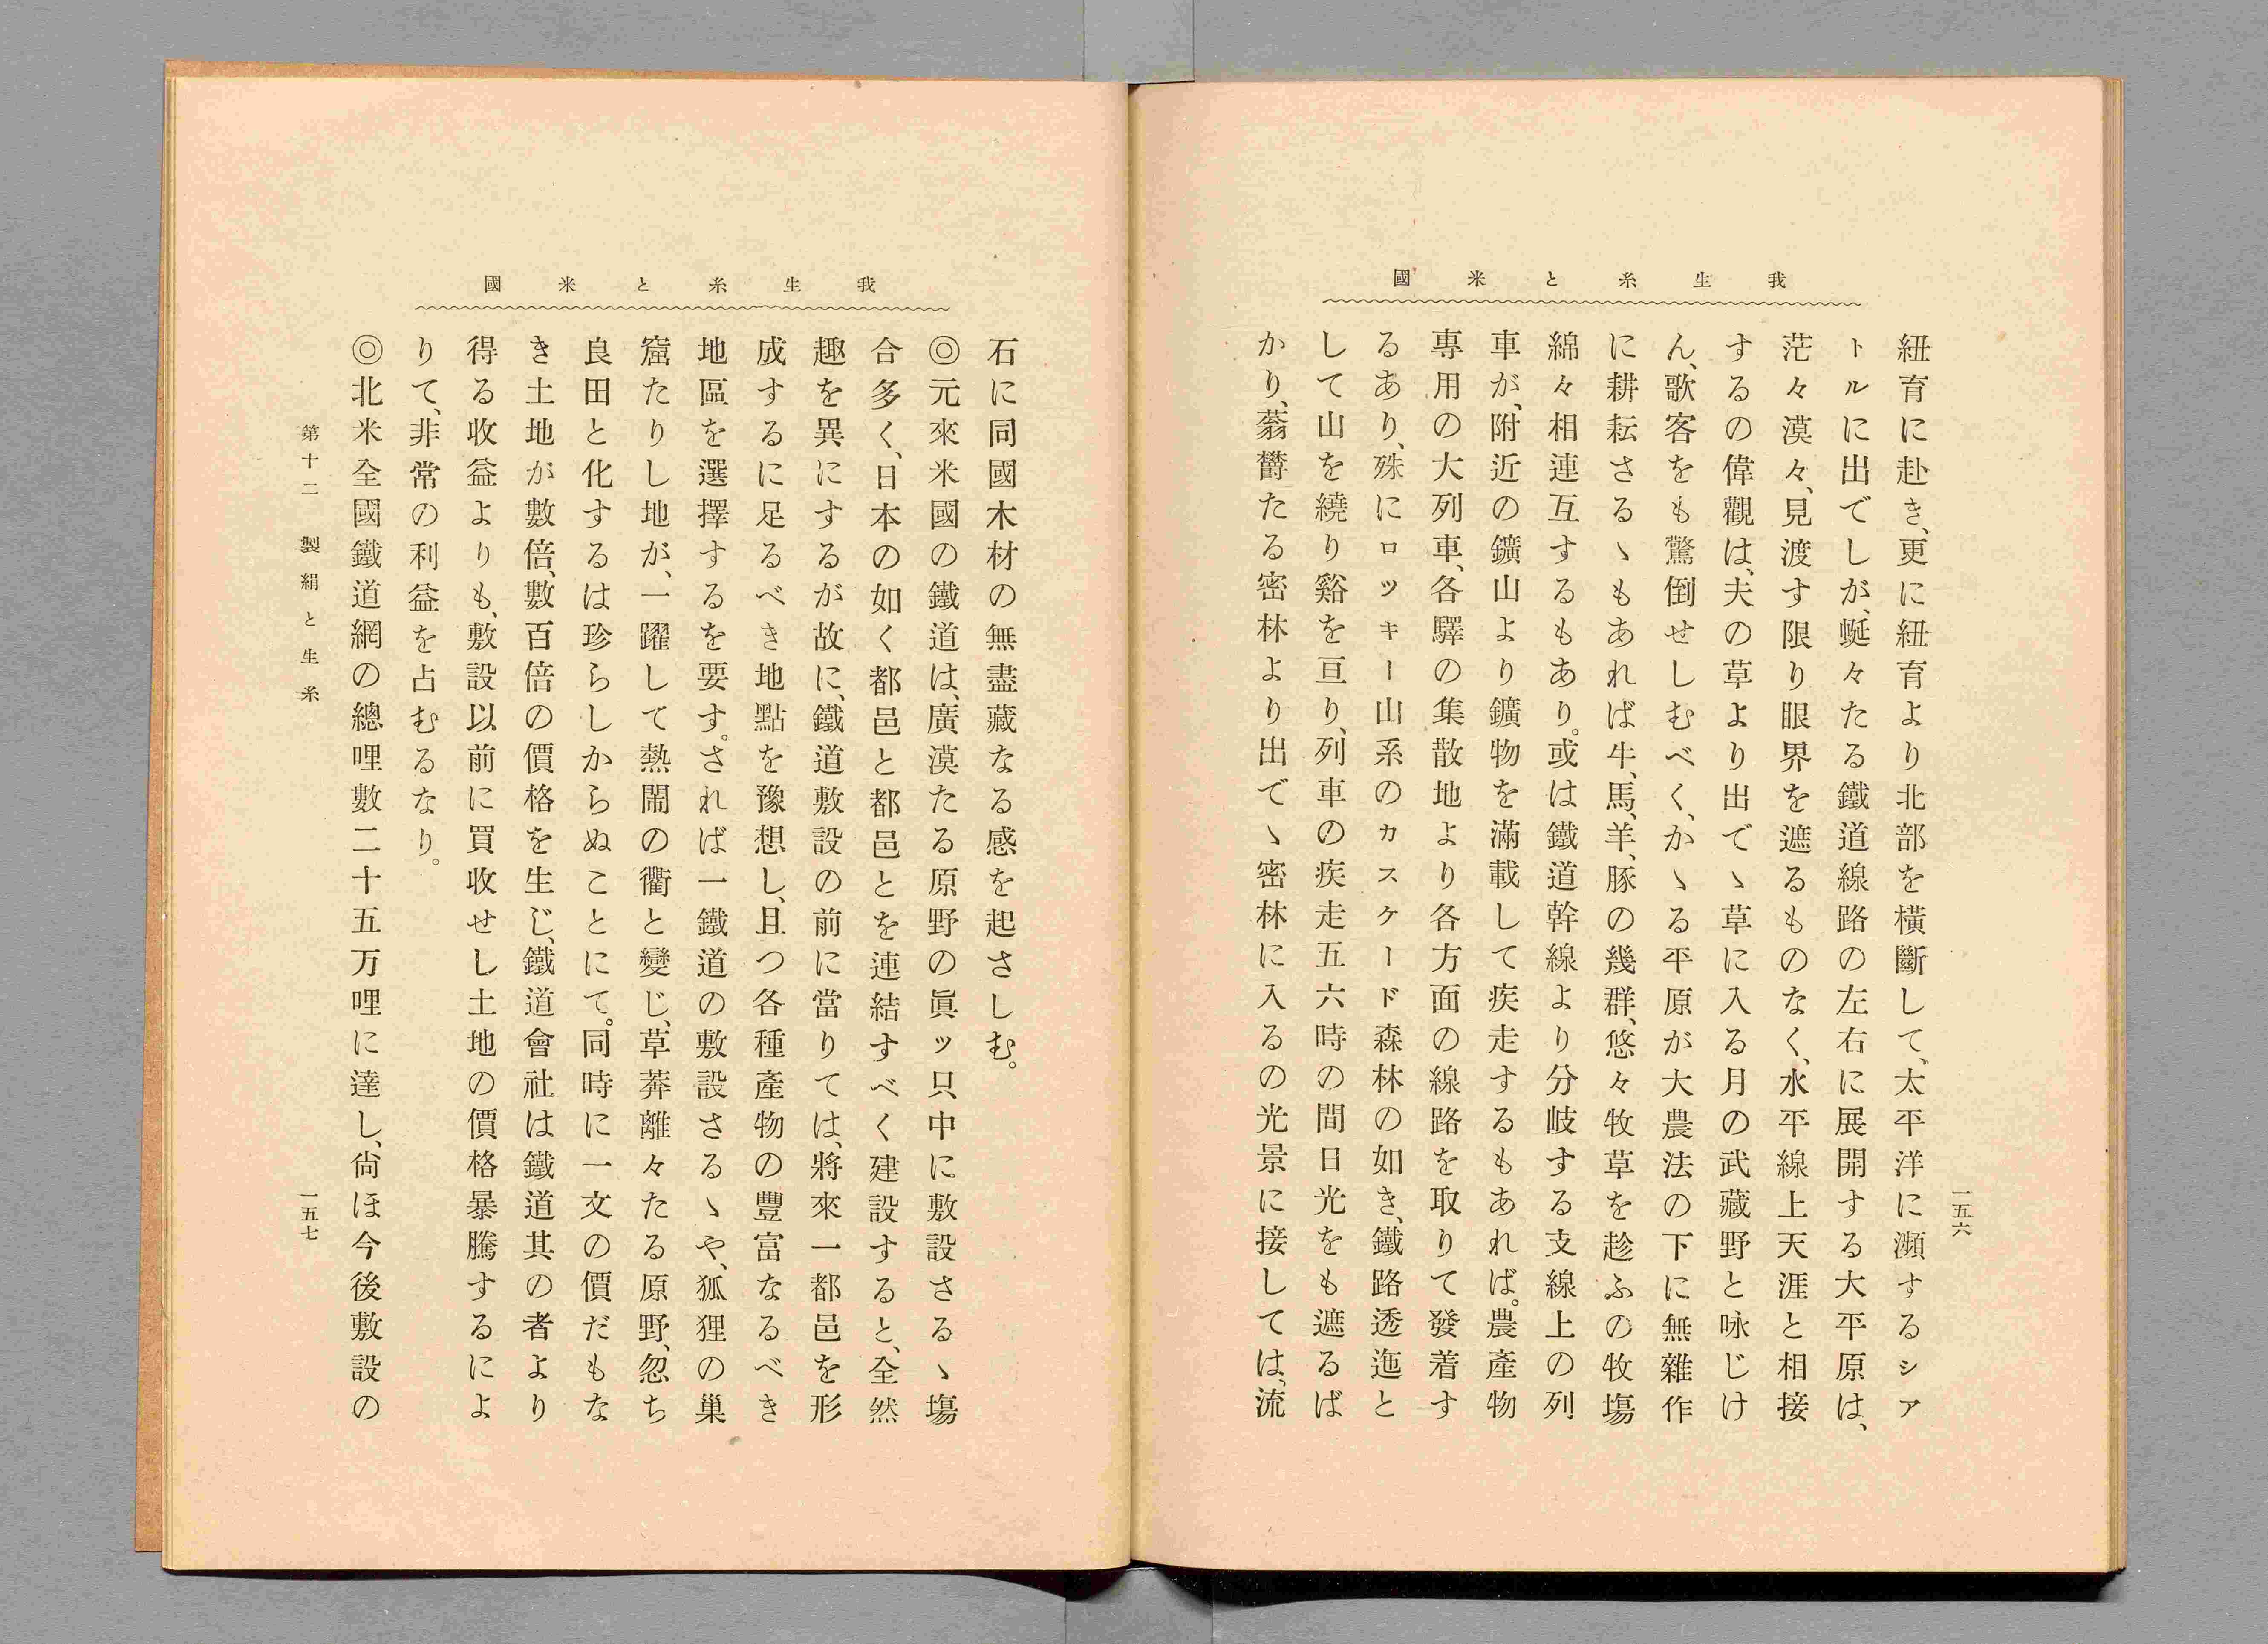 我生糸と米國
紐育に赴き、更に紐育より北部を横斷して、太平洋に瀕するシア
トルに出でしが、蜒々たる鐵道線路の左右に展開する大平原は、
茫々漠々、見渡す限り眼界を遮るものなく、水平線上天涯と相接
するの偉觀は、夫の草より出でゝ草に入る月の武藏野と咏じけ
ん、歌客をも驚倒せしむべく、かゝる平原が大農法の下に無雜作
に耕耘さるゝもあれば、牛、馬、羊、豚の幾群、悠々牧草を趁ふの牧塲
綿々相連互するもあり。或は鐵道幹線より分岐する支線上の列
車が、附近の鑛山より鑛物を滿載して疾走するもあれば。農產物
專用の大列車、各驛の集散地より各方面の線路を取りて發着す
るあり、殊にロッキー山系のカスケード森林の如き、鐵路透迤と
して山を繞り谿を亘り、列車の疾走五六時の間日光をも遮るば
かり、蓊欝たる密林より出でゝ密林に入るの光景に接しては、流
一五六
我生糸と米國
石に同國木材の無盡藏なる感を起さしむ。
◎元來米國の鐵道は、廣漠たる原野の眞ッ只中に敷設さるゝ塲
合多く、日本の如く都邑と都邑とを連結すべく建設すると、全然
趣を異にするが故に、鐵道敷設の前に當りては、將來一都邑を形
成するに足るべき地點を豫想し、且つ各種產物の豐富なるべき
地區を選擇するを要す。されば一鐵道の敷設さるゝや、狐狸の巢
窟たりし地が、一躍して熱閙の衢と變じ、草莽離々たる原野、忽ち
良田と化するは珍らしからぬことにて。同時に一文の價だもな
き土地が數倍、數百倍の價格を生じ、鐵道會社は鐵道其の者より
得る收益よりも、敷設以前に買收せし土地の價格暴騰するによ
りて、非常の利益を占むるなり。
◎北米全國鐵道網の總哩數二十五万哩に達し、尙ほ今後敷設の
第十二 製絹と生糸
一五七